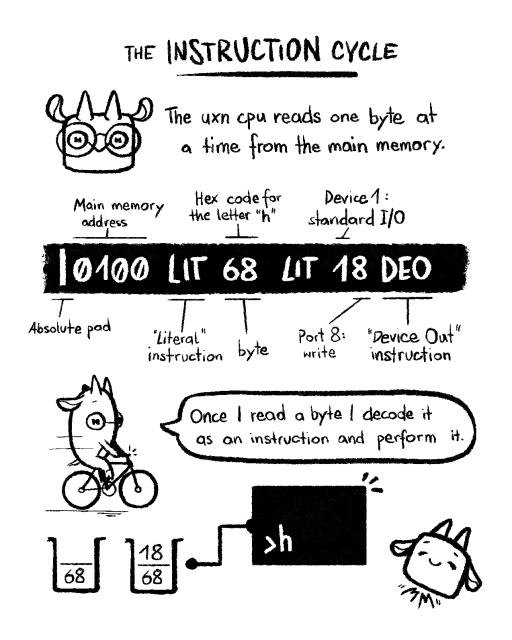 THE INSTRUCTION CYCLE
The uxn cpu reads one byte at
a time from the main memory.
Main memory
address
Hex code for
the letter "h"
Device 1:
standard I/O
|0100 LIT 68 LIT 18 DEO
Absolute pad
"Literal"
instruction
byte
Port 8:
write
"Device Out"
instruction
Once I read a byte I decode it
as an instruction and perform it.
>h
68
18
68